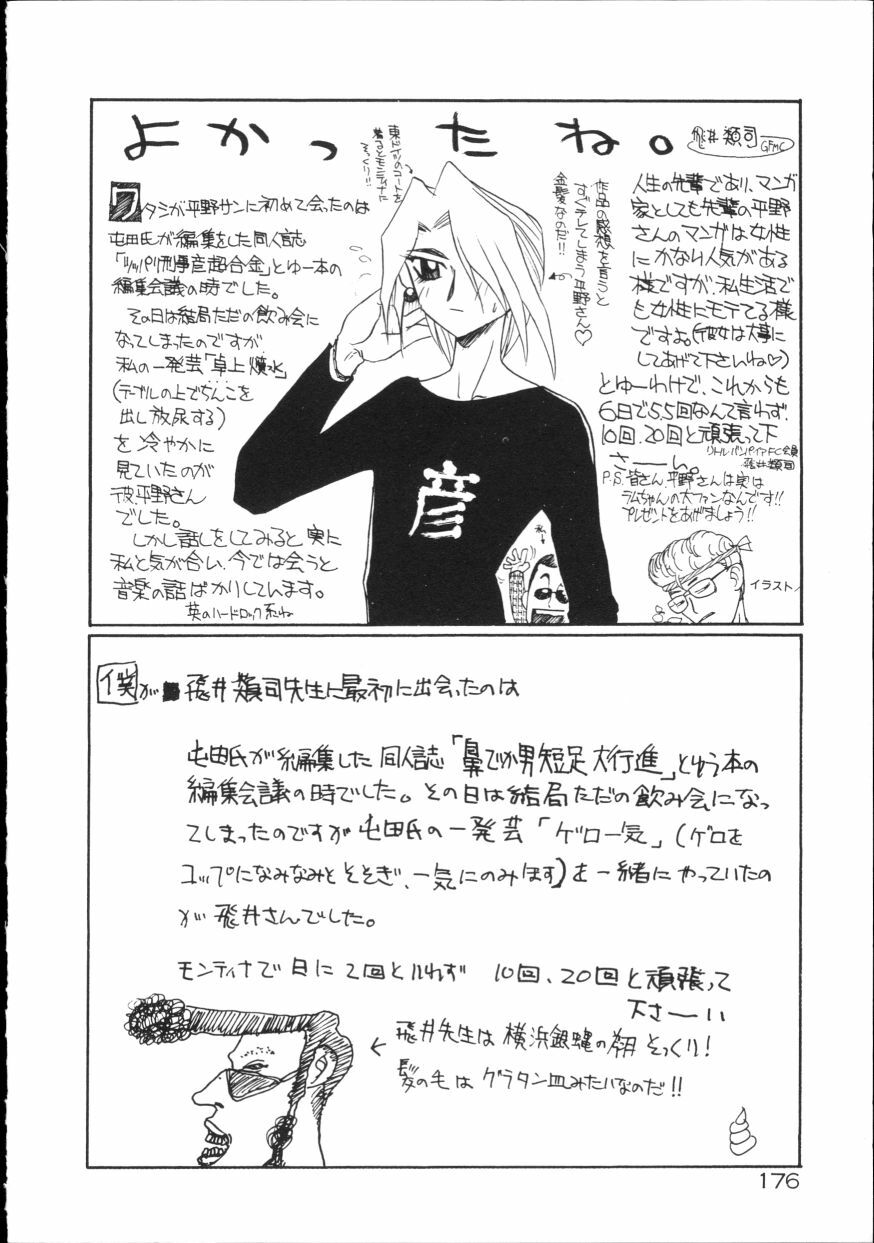 よかったね。
飛井類司
GFMC
ワタシが平野サンに初めて会ったのは
屯田氏が編集をした同人誌
「ツッパリ刑事彦超合金」とゆー本の
編集会議の時でした。
その日は結局ただの飲み会に
なってしまったのですが
私の一発芸「卓上噴水」
(テーブルの上でちんこを
出し放尿する)
を冷やかに
見ていたのが
彼、平野さん
でした。
しかし話しをしてみると実に
私と気が合い、今では会うと
音楽の話ばかりしています。
英のハードロック系ね
東ドイツのコートを
着るとモンティナだ
そっくり!!
作品の感想を言うと
すぐテレてしまう平野さん♡
金髪なのだ!!
彦
私
人生の先輩であり、マンガ
家としても先輩の平野
さんのマンガは女性
にかなり人気がある
様ですが、私生活で
も女性にモテてる様
ですお(彼女は大事に
してあげて下さいね♡)
とゆーわけで、これからも
6日で55回なんて言わず、
10回、20回と頑張って下
さーい。
リトルバンパイアFC会員
飛井類司
P.S.皆さん、平野さんは実は
ラムちゃんの大ファンなんです!!
プレゼントをあげましょう!!
イラスト/
僕が飛井類司先生に最初に出会ったのは
屯田氏が編集した同人誌「鼻でか男短足大行進」とゆう本の
編集会議の時でした。その日は結局ただの飲み会になっ
てしまったのですが屯田氏の一発芸「ゲロ一気」(ゲロを
コップになみなみとそそぎ、一気にのみほす)を一緒にやっていたの
が飛井さんでした。
モンティナで日に2回といわず 10回、20回と頑張って
下さーい
飛井先生は横浜銀蝿の翔そっくり!
髪の毛はグラタン皿みたいなのだ!!
176